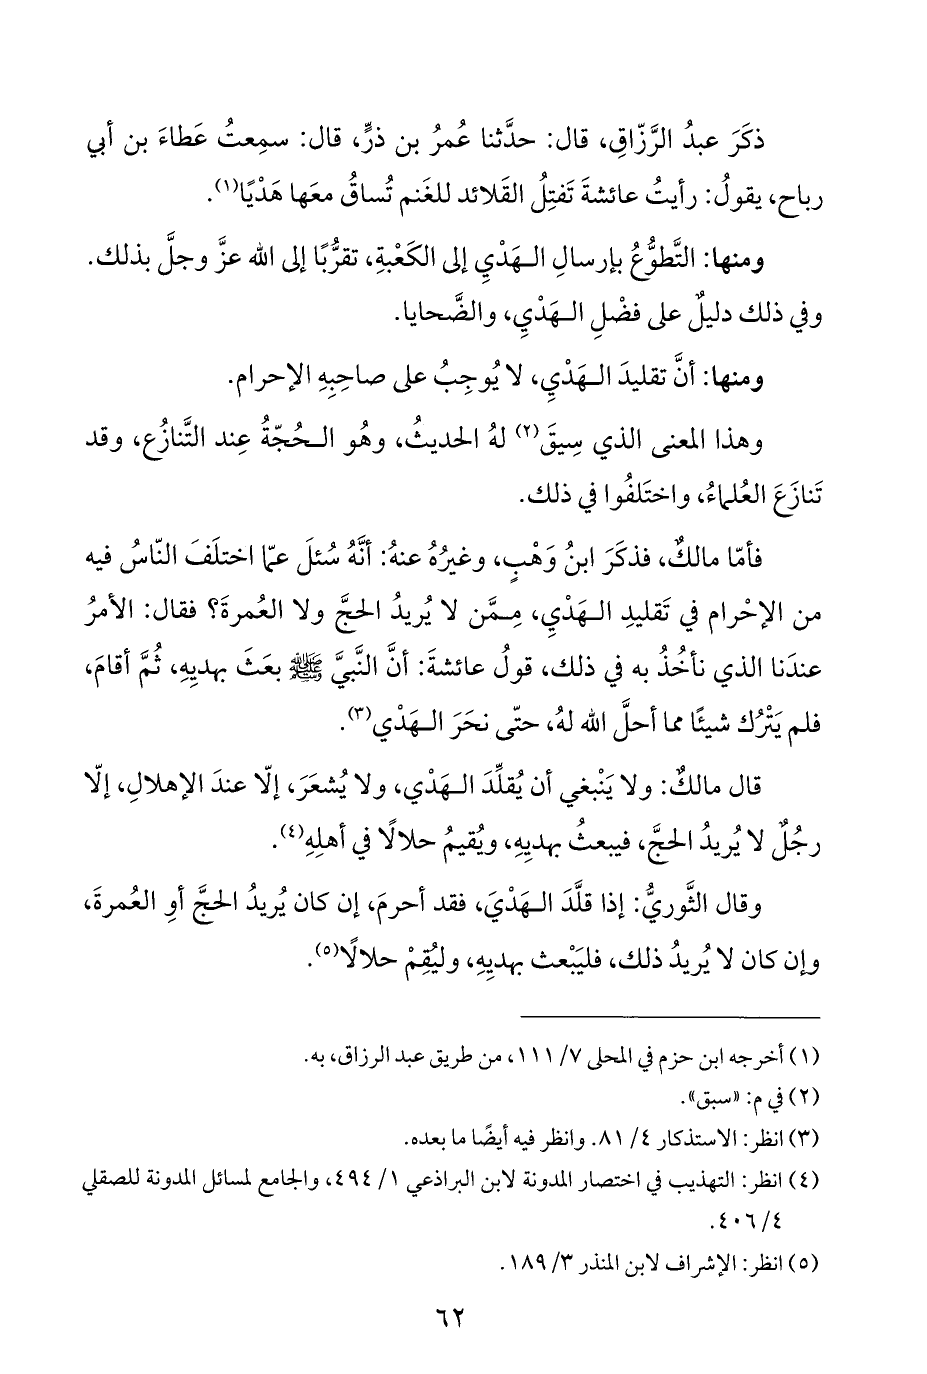 ذكَرَ عبدُ الرَّزّاقِ، قال: حدَّثنا عُمرُ بن ذرٍّ، قال: سمِعتُ عَطاءَ بن أبي
رباح، يقولُ: رأيتُ عائشةَ تَفتِلُ القَلائد للغَنم تُساقُ معَها هَدْيًا(١).
ومنها: التَّطوُّعُ بإرسالِ الـهَدْيِ إلى الكَعْبةِ، تقرُّبًا إلى الله عزَّ وجلَّ بذلك.
وفي ذلك دليلٌ على فضْلِ الـهَدْيِ، والضَّحايا.
ومنها: أنَّ تقليدَ الـهَدْيِ، لا يُوجِبُ على صاحِبِهِ الإحرام.
وهذا المعنى الذي سِيقَ(٢) لهُ الحديثُ، وهُو الـحُجّةُ عِند التَّنازُع، وقد
تَنازَعَ العُلماءُ، واختَلفُوا في ذلك.
فأمّا مالكٌ، فذكَرَ ابنُ وَهْبٍ، وغيرُهُ عنهُ: أنَّهُ سُئلَ عمّا اختلَفَ النّاسُ فيه
من الإحْرام في تَقليدِ الـهَدْيِ، مِـمَّن لا يُريدُ الحجَّ ولا العُمرةَ؟ فقال: الأمرُ
عندَنا الذي نأخُذُ به في ذلك، قولُ عائشةَ: أنَّ النَّبيَّ ﷺ بعَثَ بهديِهِ، ثُمَّ أقامَ،
فلم يَتْرُك شيئًا مما أحلَّ الله لهُ، حتّى نحَرَ الـهَدْي(٣).
قال مالكٌ: ولا يَنْبغي أن يُقلَّدَ الـهَدْي، ولا يُشعَرَ، إلّا عندَ الإهلالِ، إلّا
رجُلٌ لا يُريدُ الحجَّ، فيبعثُ بهديِهِ، ويُقيمُ حلالًا في أهلِهِ(٤).
وقال الثَّوريُّ: إذا قلَّدَ الـهَدْيَ، فقد أحرمَ، إن كان يُريدُ الحجَّ أوِ العُمرةَ،
وإن كان لا يُريدُ ذلك، فليَبْعث بهديِهِ، وليُقِمْ حلالًا(٥).
(١) أخرجه ابن حزم في المحلى ٧/ ١١١، من طريق عبد الرزاق، به.
(٢) في م: «سبق».
(٣) انظر: الاستذكار ٤/ ٨١. وانظر فيه أيضًا ما بعده.
(٤) انظر: التهذيب في اختصار المدونة لابن البراذعي ١/ ٤٩٤، والجامع لمسائل المدونة للصقلي
٤/ ٤٠٦.
(٥) انظر: الإشراف لابن المنذر ٣/ ١٨٩.
٦٢